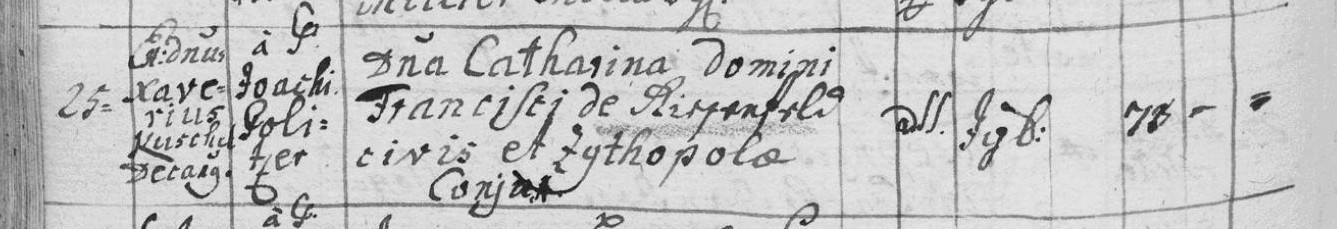 25=
R: dnus
Xave=
rius
Kuschel
Decang.
à S.
Joachi.
Poli=
zer
Dña Catharina Domini
Francisci de Riesenfeld
civis et Zythopolæ
Conjux.
78 -
à S.